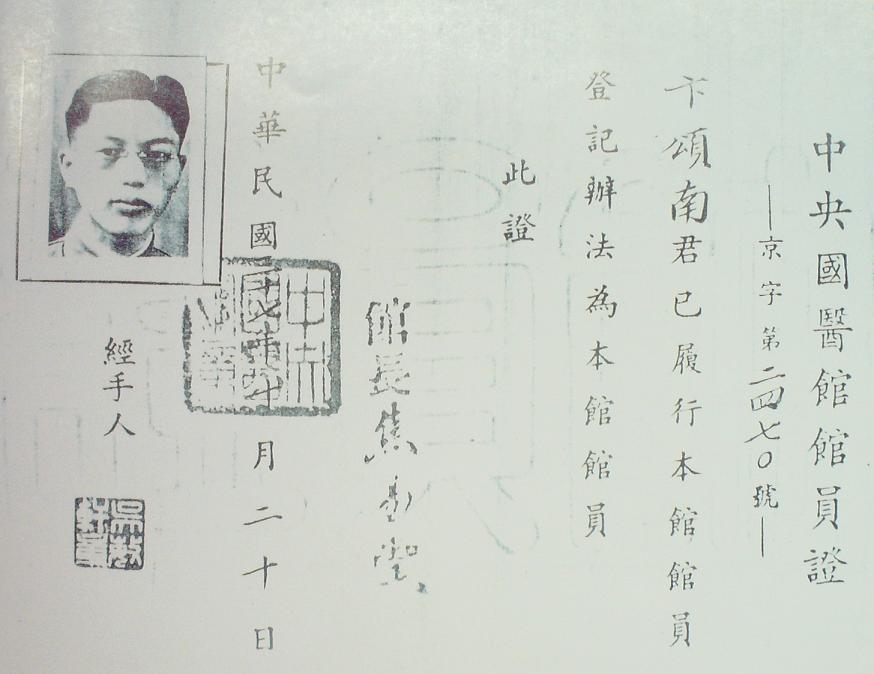 中央國醫館館員證
—京字第二四七〇號—
卞頌南君已履行本館館員
登記辦法為本館館員
此證
館長焦易堂
中華民國二十七年十月二十日
經手人